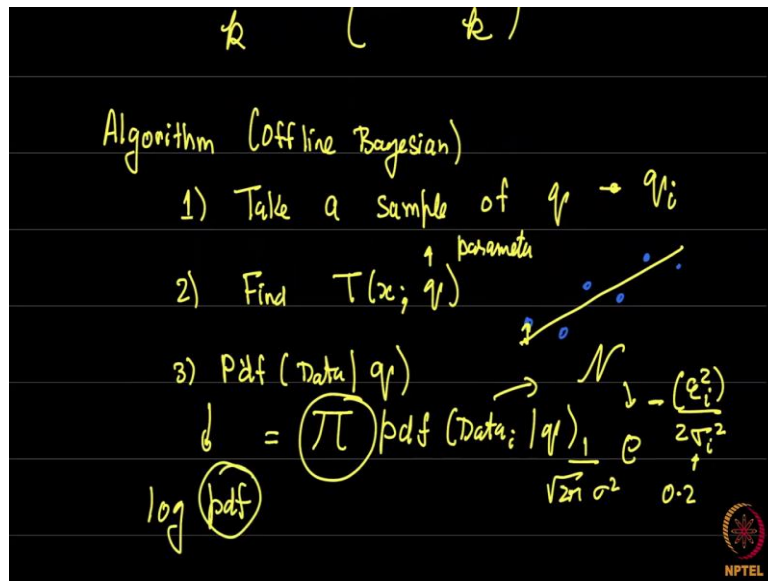 k ( k )
Algorithm (Offline Bayesian)
1) Take a sample of q → qi
↑ parameter
2) Find T(x; q)
3) Pdf (Data | q)
N
↓ = Π pdf (Datai | q) 1/√2π σ² e -(εi²)/2σi²
↑ 0.2
log pdf
NPTEL